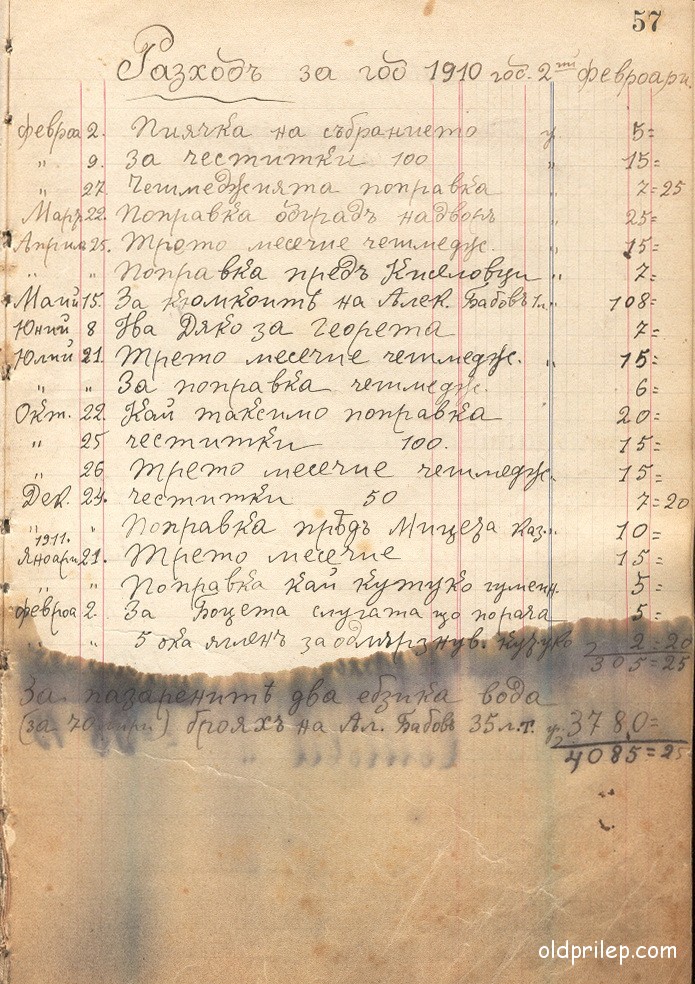 57
Разходъ за год 1910 год. 2ий февроари.
февроа 2. Пиячка на събранието 5=
" 9. За честитки 100 " 15=
" 27. Чешмеджията поправка " 7=25
Мартъ 22. Поправка обградъ надворъ " 25=
Април 25. Трето месечие чешмедж. " 15=
" " Поправка предъ Киселовци " 7=
Маий 15. За кюмкоитѣ на Алек. Бабовъ 108=
Юний 8 На Дяко за Георета 7=
Юлий 21. Трето месечие чешмедж. " 15=
" " За поправка чешмедж. 6=
Окт. 22. Кай таксимо поправка 20=
" 25 честитки 100. 15=
" 26 Трето месечие чешмедж. 15=
Дек. 24. честитки 50 7=20
" " Поправка прѣдъ Мицеза каз. 10=
1911.
Януари 21. Трето месечие 15=
" " Поправка кай кутуко 5=
февроа 2. За Боцета слугата що порача 5=
" " 5 ока ягленъ за одмързнув. 2=20
305=25
За пазаренитѣ два ебзика вода
(за 70 лири) брояхъ на Ал. Бабовъ 35 л.т. 3780=
4085=25
oldprilep.com